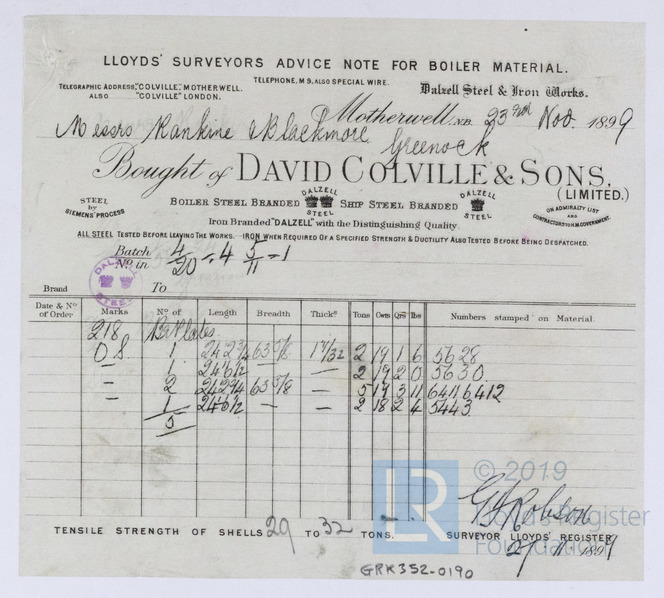 LLOYDS' SURVEYORS ADVICE NOTE FOR BOILER MATERIAL.
TELEPHONE, M 9, ALSO SPECIAL WIRE.
TELEGRAPHIC ADDRESS, "COLVILLE", MOTHERWELL.
ALSO "COLVILLE" LONDON.
Dalzell Steel & Iron Works.
Motherwell, N.B. 23rd Nov. 1899
Messrs Rankine & Blackmore
Greenock
Bought of DAVID COLVILLE & SONS,
(LIMITED.)
STEEL by SIEMENS' PROCESS
BOILER STEEL BRANDED DALZELL STEEL SHIP STEEL BRANDED DALZELL STEEL
ON ADMIRALTY LIST AND CONTRACTORS TO H.M. GOVERNMENT.
Iron Branded "DALZELL" with the Distinguishing Quality.
ALL STEEL TESTED BEFORE LEAVING THE WORKS.—IRON WHEN REQUIRED OF A SPECIFIED STRENGTH & DUCTILITY ALSO TESTED BEFORE BEING DESPATCHED.
Batch No. in 4/20 = 4 5/11 = 1
DALZELL STEEL
Brand To
Date & No. of Order Marks No. of Length Breadth Thicks Tons Cwts Qrs lbs Numbers stamped on Material.
218 Plates.
O S. 1 63 5/8 17/32 2 19 1 6 5628
— 1 24'6 1/2 — 2 19 2 0 5630
— 2 63 5/8 5 19 3 11 6411 6412
— 1 24'6 1/2 — — 2 18 2 4 5443
5
© 2019
LR
Lloyd's Register
Foundation
TENSILE STRENGTH OF SHELLS 29 TO 32 TONS.
SURVEYOR LLOYDS' REGISTER
27 . 11 . 1899
GRK352-0190